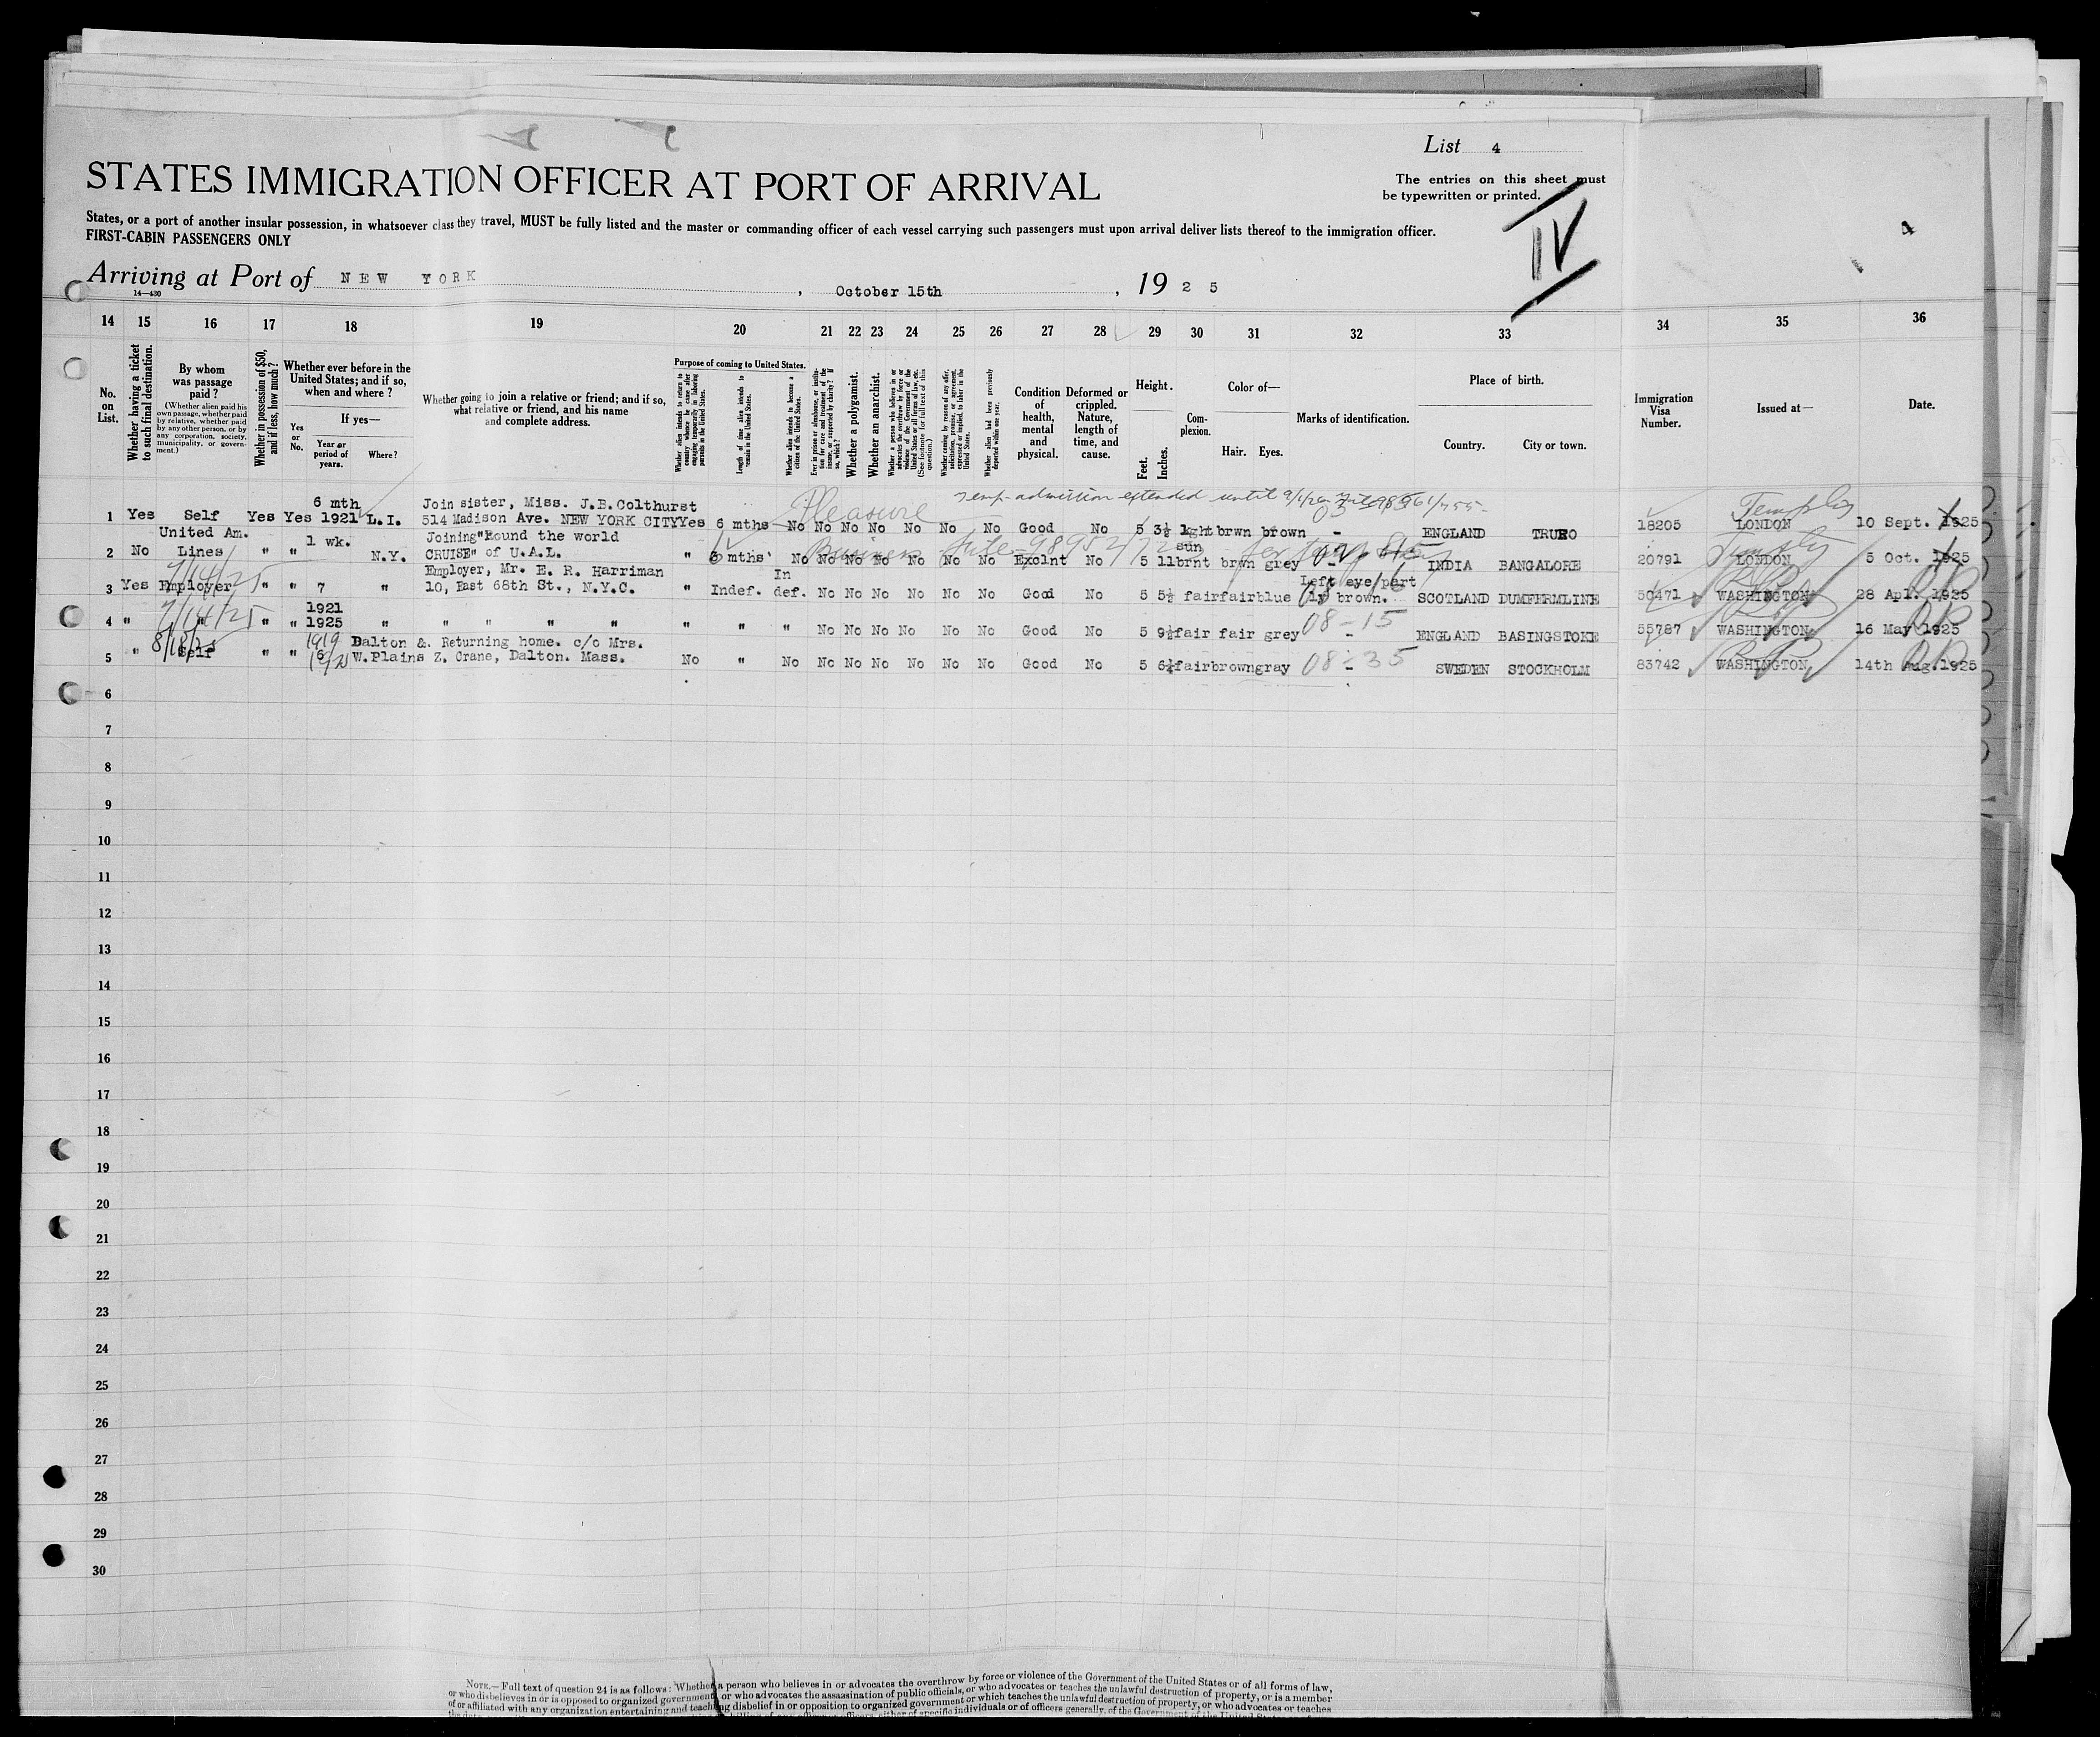 List 4
STATES IMMIGRATION OFFICER AT PORT OF ARRIVAL
The entries on this sheet must
be typewritten or printed.
IV
4
States, or a port of another insular possession, in whatsoever class they travel, MUST be fully listed and the master or commanding officer of each vessel carrying such passengers must upon arrival deliver lists thereof to the immigration officer.
FIRST-CABIN PASSENGERS ONLY
Arriving at Port of NEW YORK , October 15th , 19 2 5
14—430
14 15 16 17 18 19 20 21 22 23 24 25 26 27 28 29 30 31 32 33 34 35 36
No. on List.
Whether having a ticket to such final destination.
By whom was passage paid?
(Whether alien paid his own passage, whether paid by relative, whether paid by any other person, or by any corporation, society, municipality, or government.)
Whether in possession of $50, and if less, how much?
Whether ever before in the United States; and if so, when and where?
If yes—
Yes or No.
Year or period of years.
Where?
Whether going to join a relative or friend; and if so, what relative or friend, and his name and complete address.
Purpose of coming to United States.
Whether alien intends to return to country whence he came after engaging temporarily in laboring pursuits in the United States.
Length of time alien intends to remain in the United States.
Whether alien intends to become a citizen of the United States.
Ever in prison or almshouse, or institution for care and treatment of the insane, or supported by charity? If so, which?
Whether a polygamist.
Whether an anarchist.
Whether a person who believes in or advocates the overthrow by force or violence of the Government of the United States or all forms of law, etc. (See footnote for full text of this question.)
Whether coming by reason of any offer, solicitation, promise, or agreement, expressed or implied, to labor in the United States.
Whether alien had been previously deported within one year.
Condition of health, mental and physical.
Deformed or crippled. Nature, length of time, and cause.
Height.
Feet. Inches.
Complexion.
Color of—
Hair. Eyes.
Marks of identification.
Place of birth.
Country. City or town.
Immigration Visa Number.
Issued at—
Date.
Pleasure Temp. admission extended until
1 Yes Self Yes Yes 6 mth 1921 L.I. Join sister, Miss. J.B.Colthurst 514 Madison Ave. NEW YORK CITY Yes 6 mths No No No No No No No Good No 5 3½ lght brwn brown - ENGLAND TRURO 18205 LONDON 10 Sept. 1925
Business
2 No United Am. Lines " " 1 wk. N.Y. Joining "Round the world CRUISE" of U.A.L. " 6 mths No No No No No No No Exclnt No 5 11 sun brnt brwn grey - INDIA BANGALORE 20791 LONDON 5 Oct. 1925
7/14/25
3 Yes Employer " " 7 " Employer, Mr. E. R. Harriman 10, East 68th St., N.Y.C. " Indef. In def. No No No No No No Good No 5 5½ fair fair blue Left eye part ly brown. SCOTLAND DUMFERMLINE 50471 WASHINGTON 28 Apl. 1925
7/14/25
4 " " " " 1921 1925 " " " " " " " " No No No No No No Good No 5 9½ fair fair grey 08-15 - ENGLAND BASINGSTOKE 55787 WASHINGTON 16 May 1925
8/18/25
5 " Self " " 1919 Dalton &. W.Plains Returning home. c/o Mrs. Z. Crane, Dalton. Mass. No " No No No No No No No Good No 5 6½ fair brown gray 08-35 - SWEDEN STOCKHOLM 83742 WASHINGTON 14th Aug. 1925
6
7
8
9
10
11
12
13
14
15
16
17
18
19
20
21
22
23
24
25
26
27
28
29
30
NOTE.—Full text of question 24 is as follows: "Whether a person who believes in or advocates the overthrow by force or violence of the Government of the United States or of all forms of law,
or who disbelieves in or is opposed to organized government, or who advocates the assassination of public officials, or who advocates or teaches the unlawful destruction of property, or is a member
of or affiliated with any organization entertaining and teaching disbelief in or opposition to organized government or which teaches the unlawful destruction of property, or who advocates or teaches